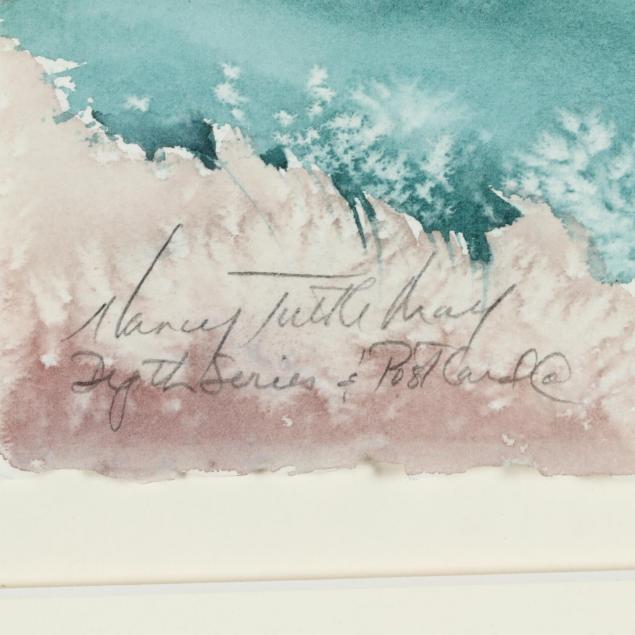 Nancy Tuttle May
Depth Series & "Postcard @